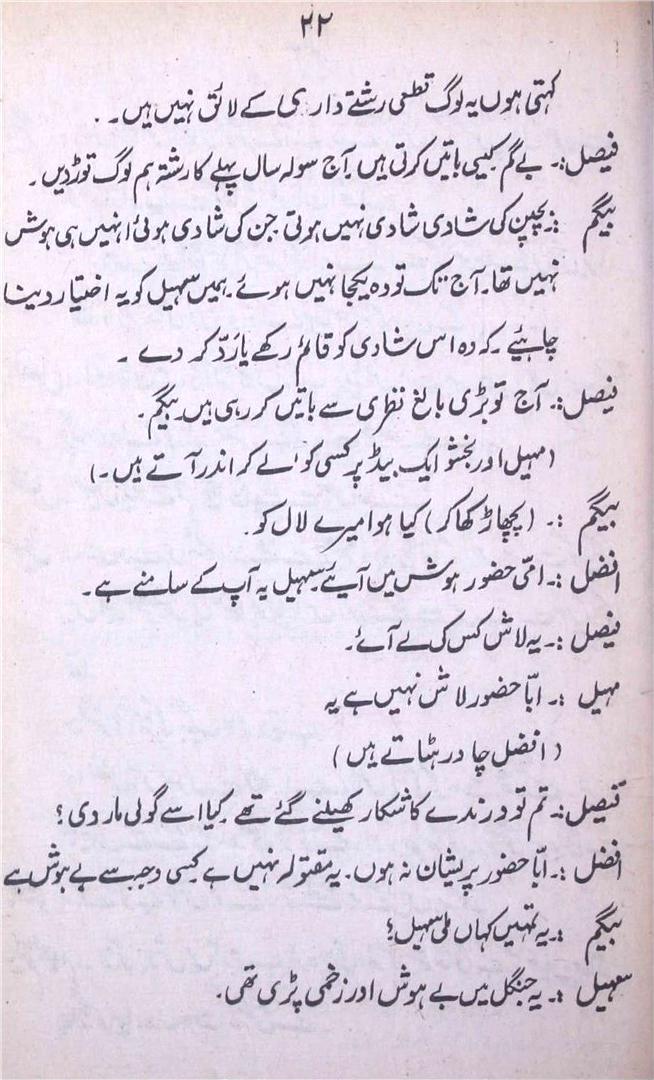 ۲۲
کہتی ہوں یہ لوگ قطعی رشتے داری کے لائق نہیں ہیں۔
فیصل :۔ بے گم کیسی باتیں کرتی ہیں آج سولہ سال پہلے کا رشتہ ہم لوگ توڑ دیں۔
بیگم :۔ بچپن کی شادی شادی نہیں ہوتی جن کی شادی ہوئی انہیں ہی ہوش
نہیں تھا۔ آج تک تو وہ یکجا نہیں ہوئے۔ ہمیں سہیل کو یہ اختیار دینا
چاہیئے۔ کہ وہ اس شادی کو قائم رکھے یا ردّ کر دے ۔
فیصل :۔ آج تو بڑی بالغ نظری سے باتیں کر رہی ہیں بیگم۔
(سہیل اور بخشو ایک بیڈ پر کسی کو لے کر اندر آتے ہیں۔)
بیگم :۔ (پچھاڑ کھا کر) کیا ہوا میرے لال کو۔
افضل :۔ امّی حضور ہوش میں آیئے سہیل یہ آپ کے سامنے ہے۔
فیصل :۔ یہ لاش کس کی لے آئے۔
سہیل :۔ ابّا حضور لاش نہیں ہے یہ
(افضل چادر ہٹاتے ہیں)
فیصل :۔ تم تو درندے کا شکار کھیلنے گئے تھے کیا اسے گولی مار دی؟
افضل :۔ ابّا حضور پریشان نہ ہوں۔ یہ مقتولہ نہیں ہے کسی وجہ سے بے ہوش ہے
بیگم :۔ یہ تمہیں کہاں ملی سہیل؟
سہیل :۔ یہ جنگل میں بے ہوش اور زخمی پڑی تھی۔